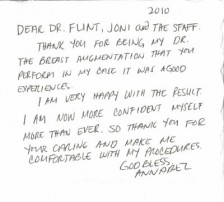 2010
DEAR DR. FLINT, JONI and THE STAFF.
THANK YOU FOR BEING MY DR.
THE BREAST AUGMENTATION THAT YOU
PERFORM IN MY CASE IT WAS A GOOD
EXPERIENCE.
I AM VERY HAPPY WITH THE RESULT.
I AM NOW MORE CONFIDENT MYSELF
MORE THAN EVER. SO THANK YOU FOR
YOUR CARING AND MAKE ME
COMFORTABLE WITH MY PROCEDURES.
GOD BLESS,
ANNABEL